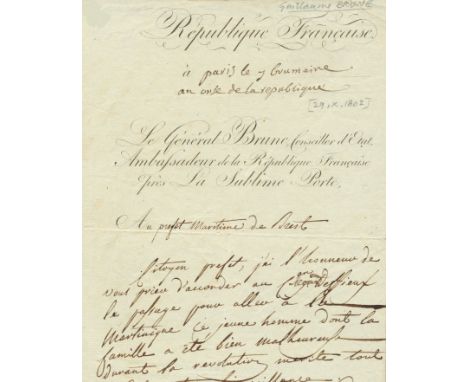 Guillaume BRUNE
République Française
à paris le 7 brumaire
an onze de la republique
[29.X.1802]
Le Général Brune, Conseiller d'Etat,
Ambassadeur de la République Française
près La Sublime Porte,
Au prefet Maritime de Brest
Citoyen prefet, j'ai l'honneur de
vous prier d'accorder au
le passage pour aller à la
Martinique Ce jeune homme dont la
famille a eté bien malheureuse
durant la revolution merite tout